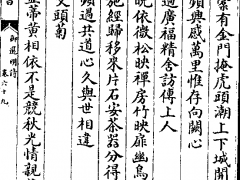 有金門掩虎頭潮上下城開
頻興感萬里惟存向闕心
過廣福精舍訪傅上人
晚依微松映禪房竹映扉幽鳥
施經歸移來片石安茶器分得
頻過共道心久與世相違
頭菊
黃相依不是競秋光情親
御選明詩
卷六十九